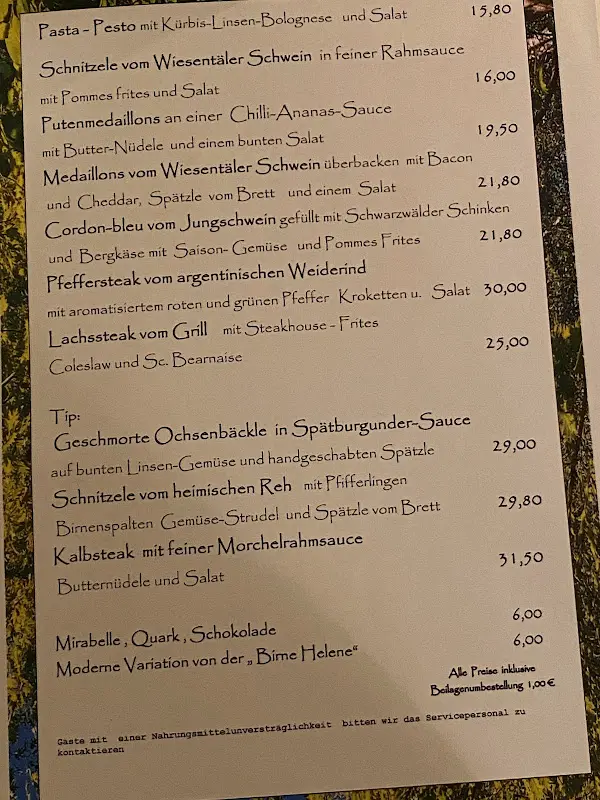 Pasta - Pesto mit Kürbis-Linsen-Bolognese und Salat 15,80
Schnitzele vom Wiesentäler Schwein in feiner Rahmsauce
mit Pommes frites und Salat 16,00
Putenmedaillons an einer Chilli-Ananas-Sauce
mit Butter-Nüdele und einem bunten Salat 19,50
Medaillons vom Wiesentäler Schwein überbacken mit Bacon
und Cheddar, Spätzle vom Brett und einem Salat 21,80
Cordon-bleu vom Jungschwein gefüllt mit Schwarzwälder Schinken
und Bergkäse mit Saison- Gemüse und Pommes Frites 21,80
Pfeffersteak vom argentinischen Weiderind
mit aromatisiertem roten und grünen Pfeffer Kroketten u. Salat 30,00
Lachssteak vom Grill mit Steakhouse - Frites
Coleslaw und Sc. Bearnaise 25,00
Tip:
Geschmorte Ochsenbäckle in Spätburgunder-Sauce
auf bunten Linsen-Gemüse und handgeschabten Spätzle 29,00
Schnitzele vom heimischen Reh mit Pfifferlingen
Birnenspalten Gemüse-Strudel und Spätzle vom Brett 29,80
Kalbsteak mit feiner Morchelrahmsauce
Butternüdele und Salat 31,50
Mirabelle , Quark , Schokolade 6,00
Moderne Variation von der „ Birne Helene“ 6,00
Alle Preise inklusive
Beilagenumbestellung 1,00 €
Gäste mit einer Nahrungsmittelunverträglichkeit bitten wir das Servicepersonal zu
kontaktieren